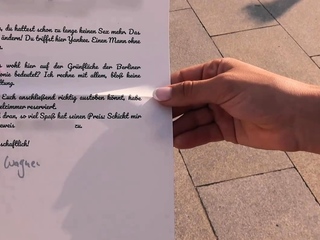 , du hattest schon zu lange keinen Sex mehr. Das
ändern! Du triffst hier Yankee. Einen Mann ohne
s.
s wohl hier auf der Grünfläche der Berliner
onie bedeutet? Ich rechne mit allem, bloß keine
ltung.
Euch anschließend richtig austoben könnt, habe
elzimmer reserviert.
dran, so viel Spaß hat seinen Preis: Schickt mir
weis zu.
schaftlich!
Wagner